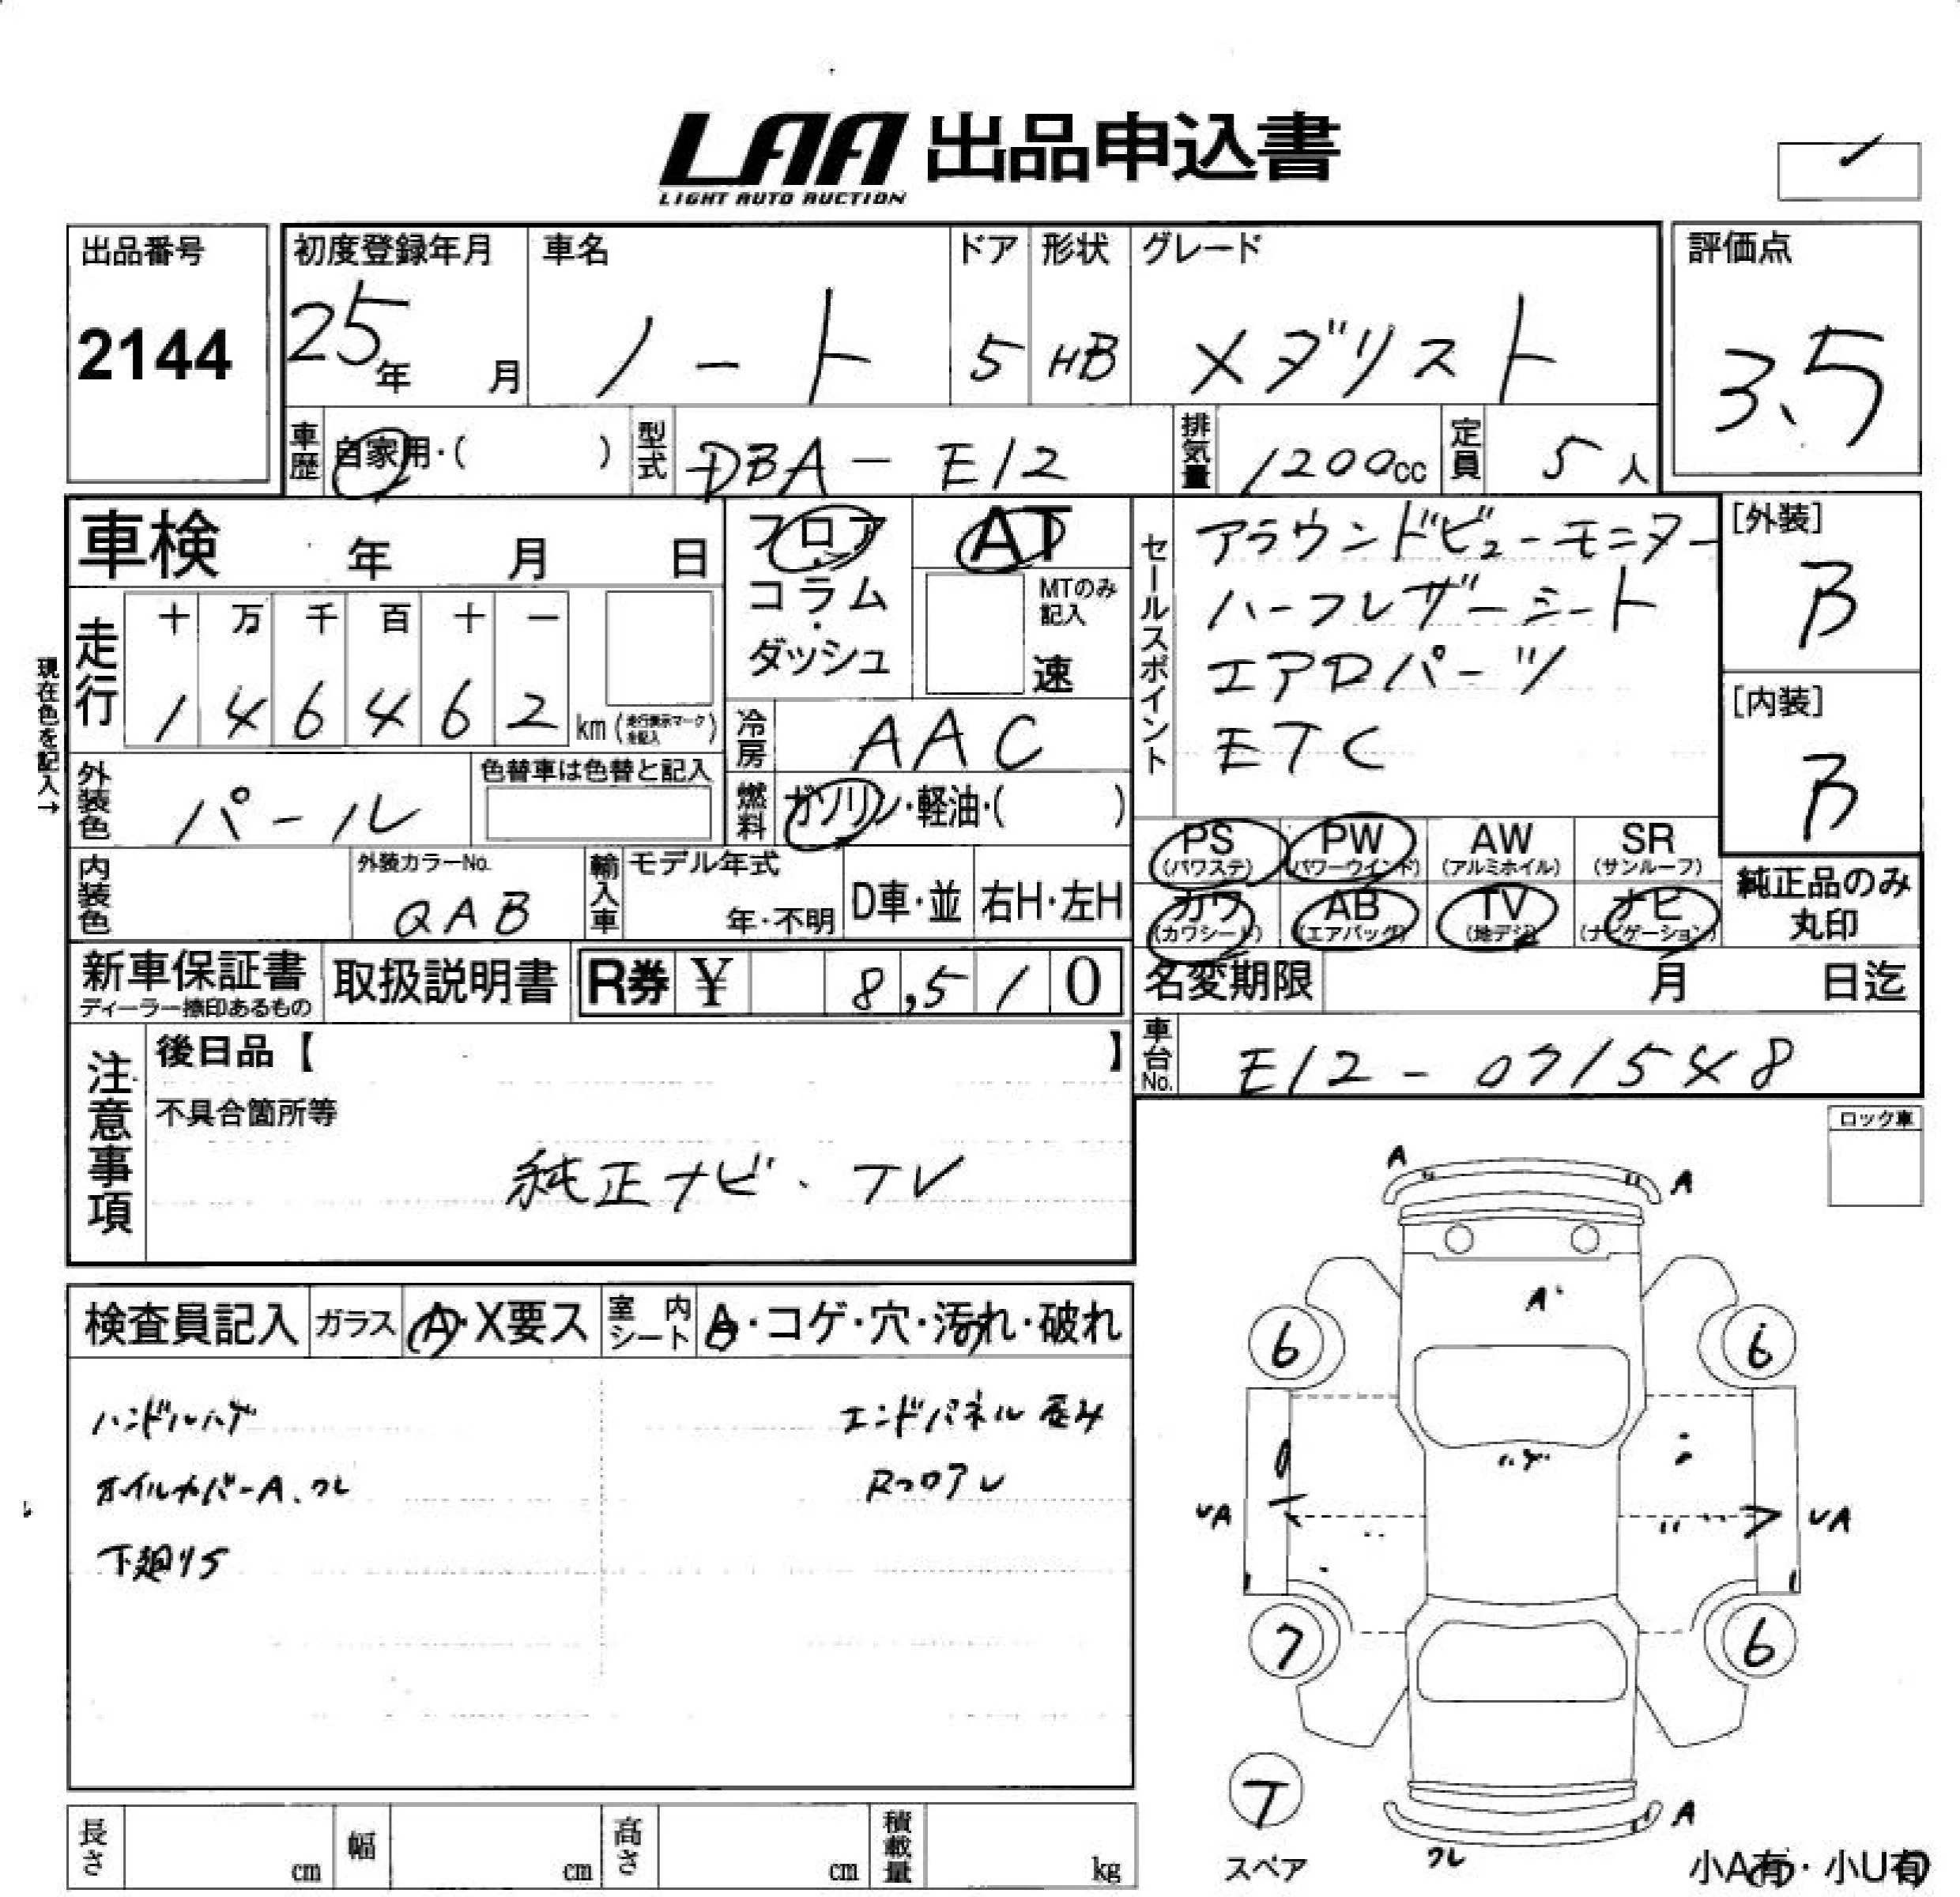 LAA 出品申込書
LIGHT AUTO AUCTION
出品番号
2144
初度登録年月
25年 月
車名
ノート
ドア
5
形状
HB
グレード
メダリスト
評価点
3.5
車歴
自家用・( )
型式
DBA-E12
排気量
1200cc
定員
5人
車検 年 月 日
フロア
コラム
・
ダッシュ
AT
MTのみ
記入
速
セールスポイント
アラウンドビューモニター
ハーフレザーシート
エアロパーツ
ETC
[外装]
B
[内装]
B
現在色を記入→
走行
十 万 千 百 十 一
1 4 6 4 6 2 km (走行表示マークを記入)
冷房
AAC
外装色
パール
色替車は色替と記入
燃料
ガソリン・軽油・( )
PS
(パワステ)
PW
(パワーウインド)
AW
(アルミホイル)
SR
(サンルーフ)
カワ
(カワシート)
AB
(エアバッグ)
TV
(地デジ)
ナビ
(ナビゲーション)
純正品のみ
丸印
内装色
外装カラーNo.
QAB
輸入車
モデル年式
年・不明
D車・並
右H・左H
新車保証書
ディーラー捺印あるもの
取扱説明書
R券 ¥ 8,510
名変期限 月 日迄
車台No.
E12-071548
注意事項
後日品【 】
不具合箇所等
純正ナビ・TV
ロック車
検査員記入
ガラス
A・X要ス
室内シート
A・コゲ・穴・汚れ・破れ
ハンドルハゲ
オイルカバーA、ワレ
下廻りS
エンドパネル歪み
Rフロアレ
A
A
A
6
6
ハゲ
UA
UA
7
6
T
スペア
A
ワレ
小A有・小U有
長さ cm
幅 cm
高さ cm
積載量 kg